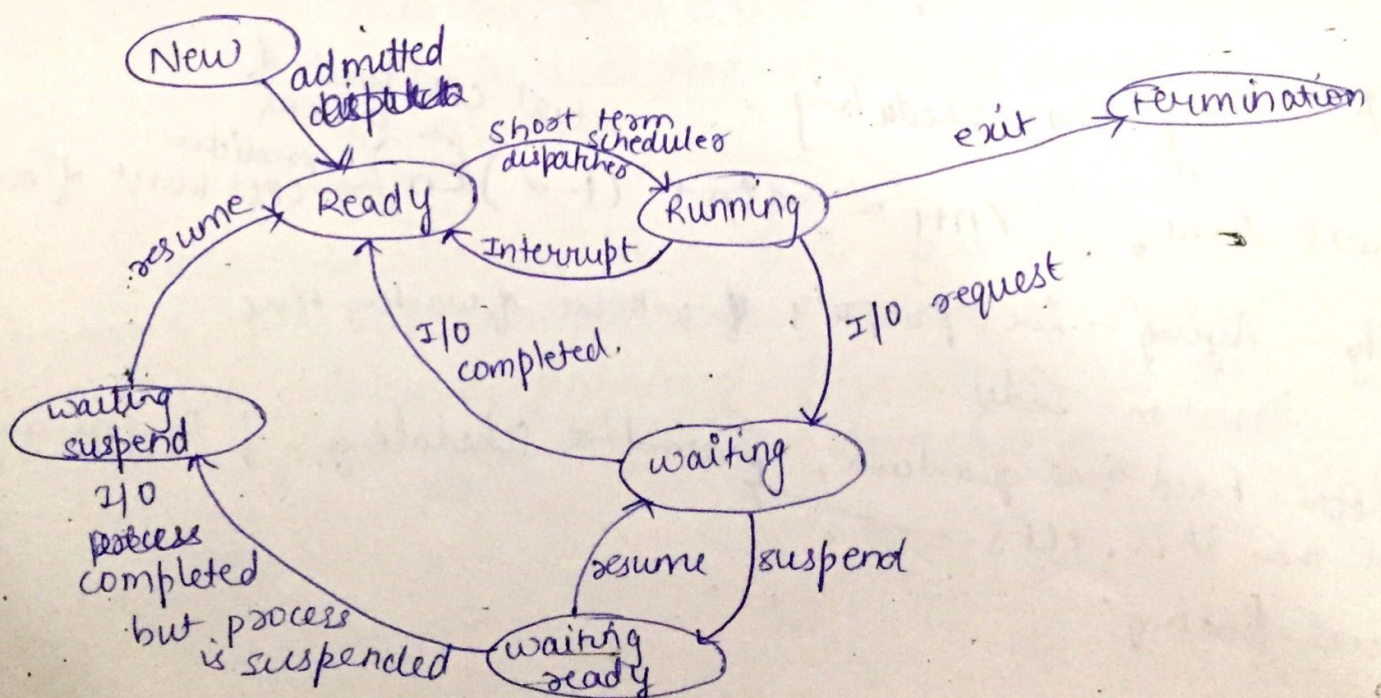 New
admitted
short term
scheduler
dispatcher
exit
Termination
Ready
Running
resume
Interrupt
I/O request
I/O
completed.
waiting
suspend
waiting
I/O
process
completed
but process
is suspended
resume
suspend
waiting
ready